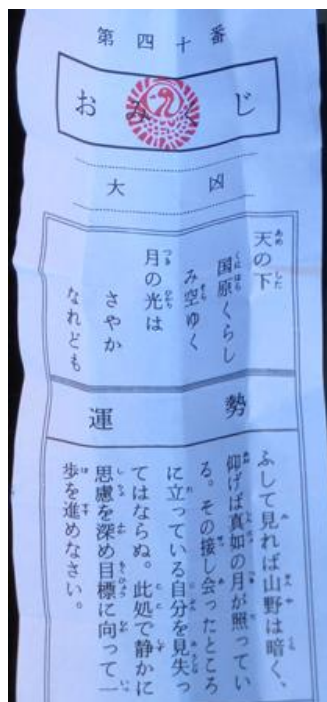 第四十番
おみくじ
大凶
天の下
国原くらし
み空ゆく
月の光は
さやか
なれども
運勢
ふして見れば山野は暗く、
仰げば真如の月が照ってい
る。その接し会ったところ
に立っている自分を見失っ
てはならぬ。此処で静かに
思慮を深め目標に向って一
歩を進めなさい。